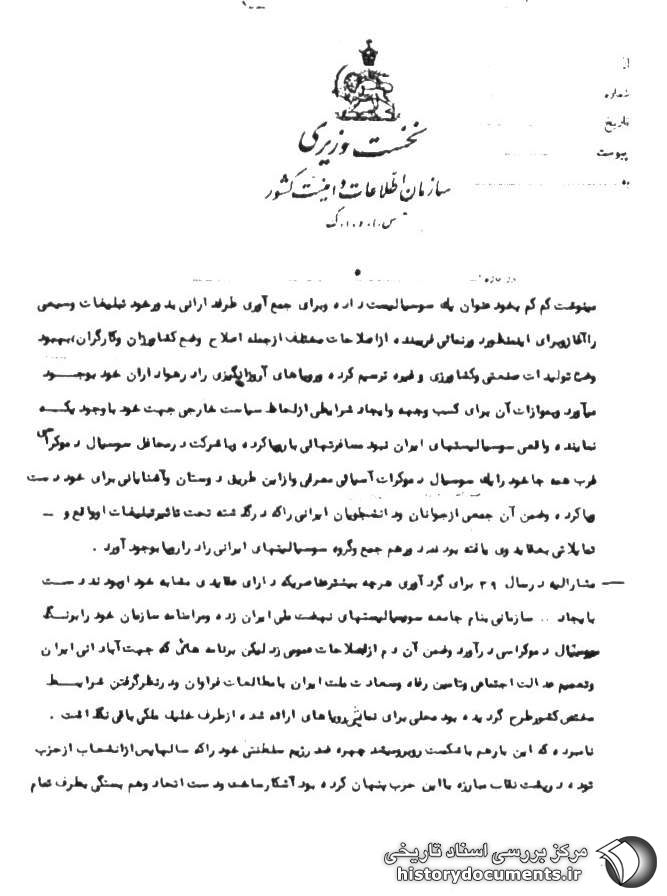 از
شماره
تاریخ
پیوست
نخست وزیری
سازمان اطلاعات و امنیت کشور
س.ا.و.ا.ک
مینوشت کم کم بخود عنوان یک سوسیالیست داده وبرای جمع آوری طرفدارانی بدورخود تبلیغات وسیعی
را آغازوبرای اینمنظورد ورنمائی فریبنده ازاصلاحات مختلف ازجمله اصلاح وضع کشاورزان وکارگران،بهبود
وضع تولیدات صنعتی وکشاورزی و غیره ترسیم کرده ورویاهای آرزوانگیزی رادرهواداران خود بوجود
میآورد وبموازات آن برای کسب وجهه وایجاد شرایطی ازلحاظ سیاست خارجی جهت خود باوجود یکه
نماینده واقعی سوسیالیستهای ایران نبود مسافرتهائی باروپاکرده وباشرکت درمحافل سوسیال دموکراسی
غرب همه جاخود رایک سوسیال دموکرات آسیائی معرفی وازاین طریق دوستان وآشنایانی برای خود دست
وپاکرده وضمن آن جمعی ازجوانان ودانشجویان ایرانی راکه درگذشته تحت تاثیرتبلیغات اوواقع و ــ
تمایلاتی بعقاید وی یافته بودند دورهم جمع وگروه سوسیالیستهای ایرانی رادراروپابوجود آورد .
ــ مشارالیه درسال ۳۹ برای گردآوری هرچه بیشترعناصریکه دارای عقایدی مشابه خود اوبودند دست
بایجاد .. سازمانی بنام جامعه سوسیالیستهای نهضت ملی ایران زده ومرامنامه سازمان خود رابرنگ
سوسیال دموکراسی درآورد وضمن آن دم ازاصلاحات عمومی زد لیکن برنامه هائی که جهت آبادانی ایران
وتعمیم عدالت اجتماعی وتامین رفاه وسعادت ملت ایران بامطالعات فراوان ودرنظرگرفتن شرایط
مختص کشورطرح گردیده بود محلی برای نمایش رویاهای ارائه شده ازطرف خلیل ملکی باقی نگذاشت .
نامبرده که این بارهم باشکست روبرومیشد چهره ضد رژیم سلطنتی خود راکه سالهاپس ازانشعاب ازحزب
توده درپشت نقاب مبارزه بااین حزب پنهان کرده بود آشکارساخت ودست اتحاد وهم بستگی بطرف تمام
مرکز بررسی اسناد تاریخی
historydocuments.ir